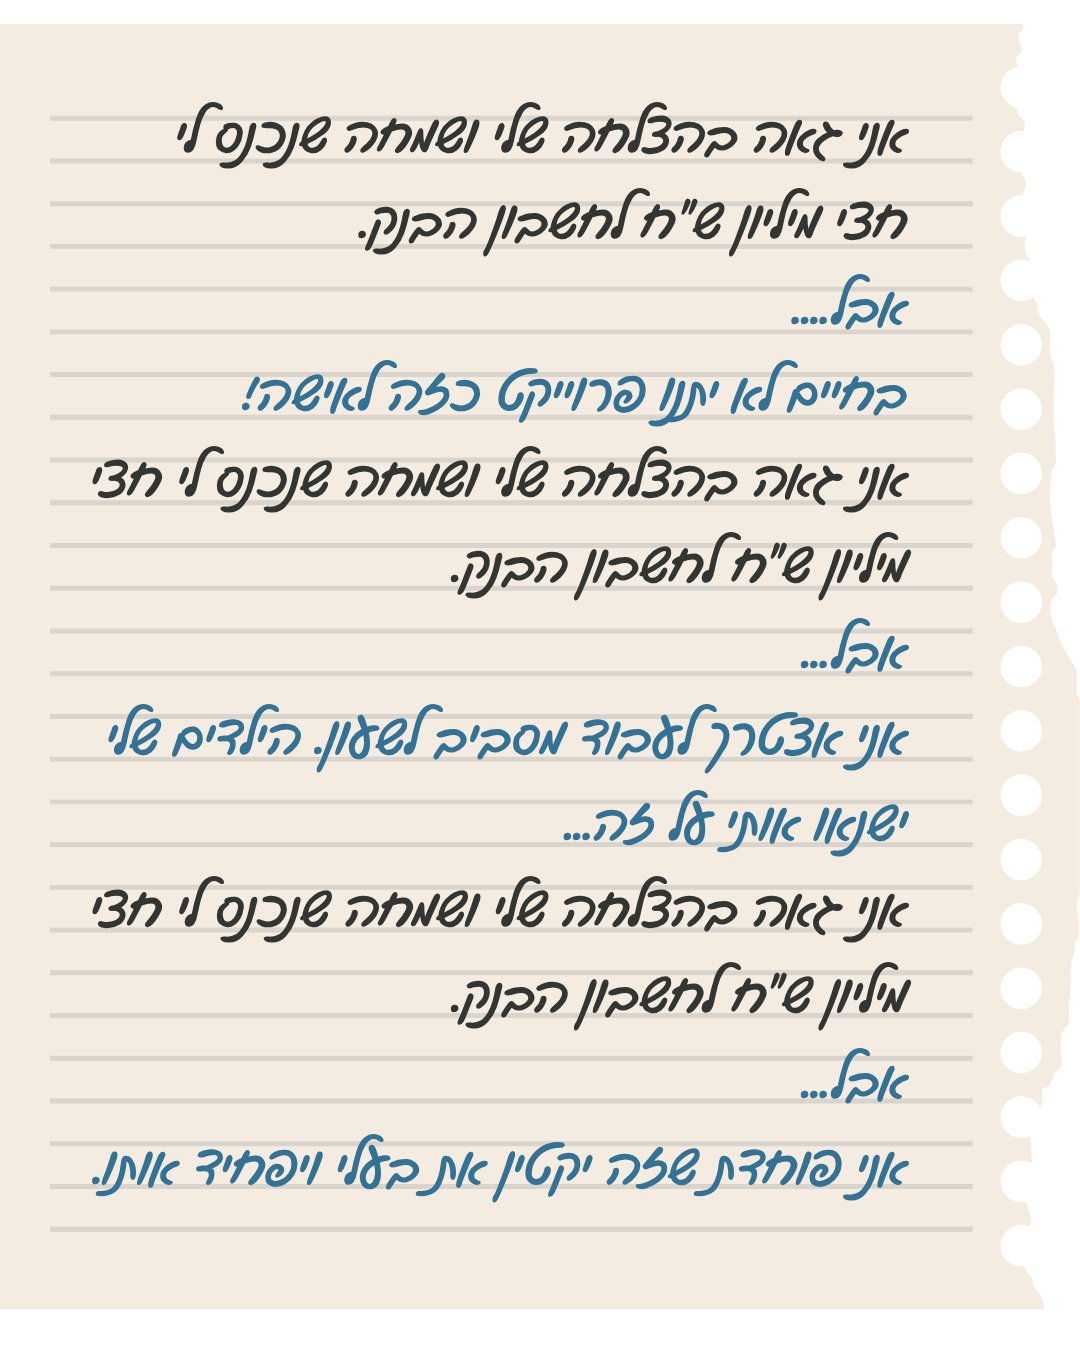 אני גאה בהצלחה שלי ושמחה שנכנס לי
חצי מיליון ש"ח לחשבון הבנק.
אבל....
בחיים לא יתנו פרוייקט כזה לאישה!
אני גאה בהצלחה שלי ושמחה שנכנס לי חצי
מיליון ש"ח לחשבון הבנק.
אבל...
אני אצטרך לעבוד מסביב לשעון. הילדים שלי
ישנאו אותי על זה...
אני גאה בהצלחה שלי ושמחה שנכנס לי חצי
מיליון ש"ח לחשבון הבנק.
אבל...
אני פוחדת שזה יקטין את בעלי ויפחיד אותו.